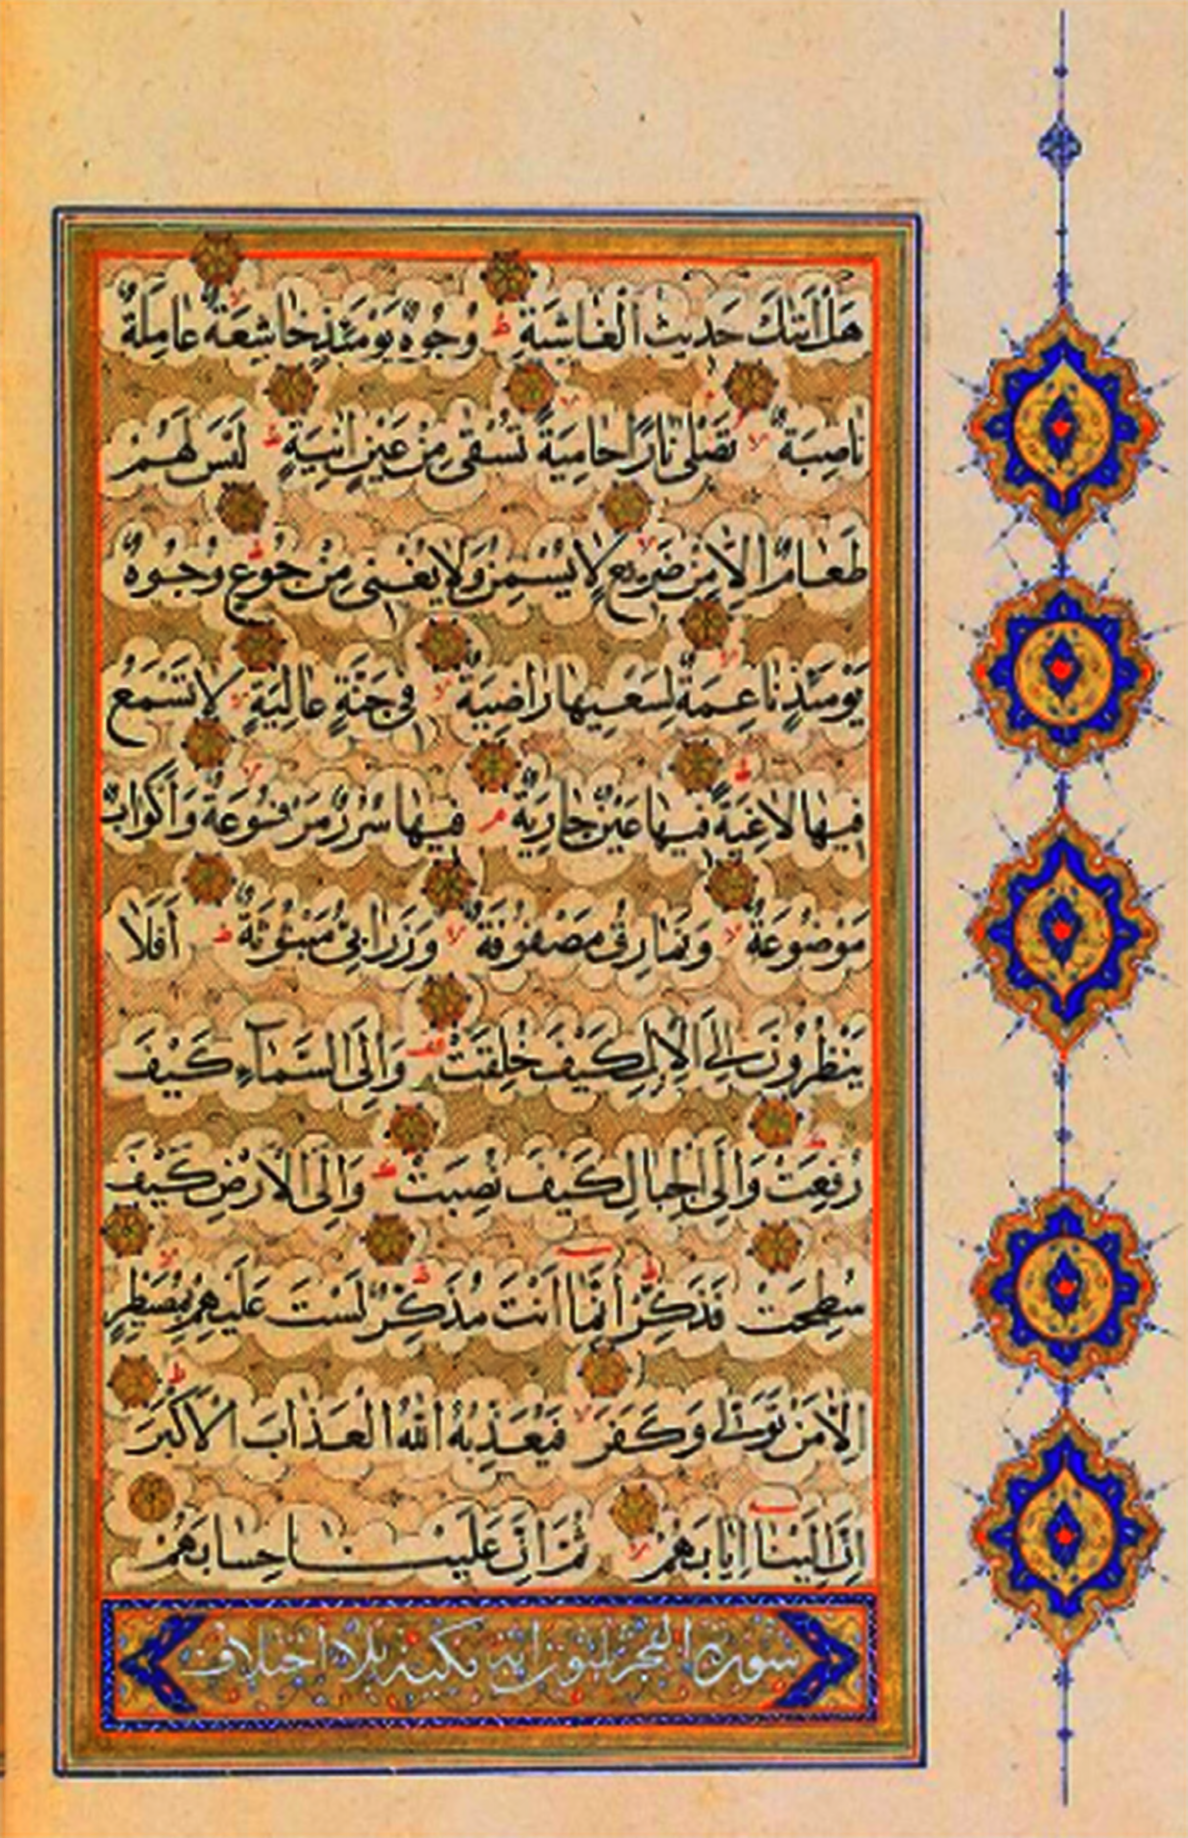 هَلْ أَتٰكَ حَدِيثُ الْغَاشِيَةِ ط وُجُوهٌ يَوْمَئِذٍ خَاشِعَةٌ لا عَامِلَةٌ
نَاصِبَةٌ لا تَصْلٰى نَارًا حَامِيَةً لا تُسْقٰى مِنْ عَيْنٍ اٰنِيَةٍ ط لَيْسَ لَهُمْ
طَعَامٌ اِلَّا مِنْ ضَرِيعٍ لا لَا يُسْمِنُ وَلَا يُغْنِى مِنْ جُوعٍ ط وُجُوهٌ
يَوْمَئِذٍ نَاعِمَةٌ لا لِسَعْيِهَا رَاضِيَةٌ لا فِى جَنَّةٍ عَالِيَةٍ لا لَا تَسْمَعُ
فِيهَا لَاغِيَةً ط فِيهَا عَيْنٌ جَارِيَةٌ م فِيهَا سُرُرٌ مَرْفُوعَةٌ لا وَأَكْوَابٌ
مَوْضُوعَةٌ لا وَنَمَارِقُ مَصْفُوفَةٌ لا وَزَرَابِىُّ مَبْثُوثَةٌ ط أَفَلَا
يَنْظُرُونَ اِلَى الْاِبِلِ كَيْفَ خُلِقَتْ وقف وَاِلَى السَّمَآءِ كَيْفَ
رُفِعَتْ وَاِلَى الْجِبَالِ كَيْفَ نُصِبَتْ وَاِلَى الْاَرْضِ كَيْفَ
سُطِحَتْ فَذَكِّرْ ط اِنَّمَا اَنْتَ مُذَكِّرٌ ط لَسْتَ عَلَيْهِمْ بِمُصَيْطِرٍ لا
اِلَّا مَنْ تَوَلّٰى وَكَفَرَ لا فَيُعَذِّبُهُ اللّٰهُ الْعَذَابَ الْاَكْبَرَ ط
اِنَّ اِلَيْنَا اِيَابَهُمْ لا ثُمَّ اِنَّ عَلَيْنَا حِسَابَهُمْ
سورة الفجر ثلثون اية مكية بلا اختلاف